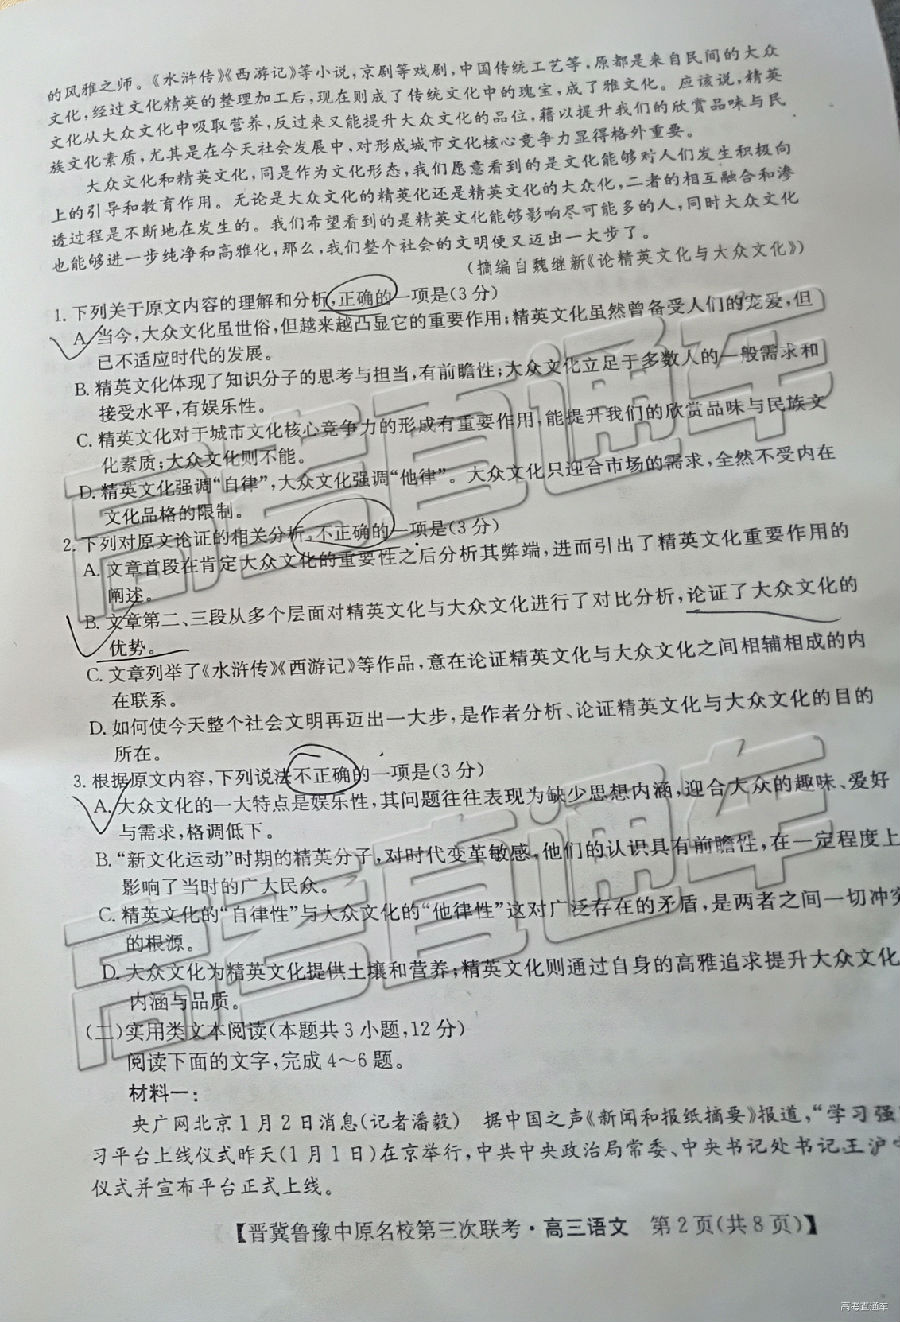 的风雅之师。《水浒传》《西游记》等小说,京剧等戏剧,中国传统工艺等,原都是来自民间的大众
文化,经过文化精英的整理加工后,现在则成了传统文化中的瑰宝,成了雅文化。应该说,精英
文化从大众文化中吸取营养,反过来又能提升大众文化的品位,藉以提升我们的欣赏品味与民
族文化素质,尤其是在今天社会发展中,对形成城市文化核心竞争力显得格外重要。
大众文化和精英文化,同是作为文化形态,我们愿意看到的是文化能够对人们发生积极向
上的引导和教育作用。无论是大众文化的精英化还是精英文化的大众化,二者的相互融合和渗
透过程是不断地在发生的。我们希望看到的是精英文化能够影响尽可能多的人,同时大众文化
也能够进一步纯净和高雅化,那么,我们整个社会的文明便又迈出一大步了。
(摘编自魏继新《论精英文化与大众文化》)
1. 下列关于原文内容的理解和分析,正确的一项是(3分)
A. 当今,大众文化虽世俗,但越来越凸显它的重要作用;精英文化虽然曾备受人们的宠爱,但
已不适应时代的发展。
B. 精英文化体现了知识分子的思考与担当,有前瞻性;大众文化立足于多数人的一般需求和
接受水平,有娱乐性。
C. 精英文化对于城市文化核心竞争力的形成有重要作用,能提升我们的欣赏品味与民族文
化素质;大众文化则不能。
D. 精英文化强调“自律”,大众文化强调“他律”。大众文化只迎合市场的需求,全然不受内在
文化品格的限制。
2. 下列对原文论证的相关分析,不正确的一项是(3分)
A. 文章首段在肯定大众文化的重要性之后分析其弊端,进而引出了精英文化重要作用的
阐述。
B. 文章第二、三段从多个层面对精英文化与大众文化进行了对比分析,论证了大众文化的
优势。
C. 文章列举了《水浒传》《西游记》等作品,意在论证精英文化与大众文化之间相辅相成的内
在联系。
D. 如何使今天整个社会文明再迈出一大步,是作者分析、论证精英文化与大众文化的目的
所在。
3. 根据原文内容,下列说法不正确的一项是(3分)
A. 大众文化的一大特点是娱乐性,其问题往往表现为缺少思想内涵,迎合大众的趣味、爱好
与需求,格调低下。
B. “新文化运动”时期的精英分子,对时代变革敏感,他们的认识具有前瞻性,在一定程度上
影响了当时的广大民众。
C. 精英文化的“自律性”与大众文化的“他律性”这对广泛存在的矛盾,是两者之间一切冲突
的根源。
D. 大众文化为精英文化提供土壤和营养;精英文化则通过自身的高雅追求提升大众文化
内涵与品质。
(二)实用类文本阅读(本题共3小题,12分)
阅读下面的文字,完成4～6题。
材料一:
央广网北京1月2日消息(记者潘毅) 据中国之声《新闻和报纸摘要》报道,“学习强
习平台上线仪式昨天(1月1日)在京举行,中共中央政治局常委、中央书记处书记王沪
仪式并宣布平台正式上线。
【晋冀鲁豫中原名校第三次联考·高三语文 第2页(共8页)】
高考直通车
高考直通车
高考直通车